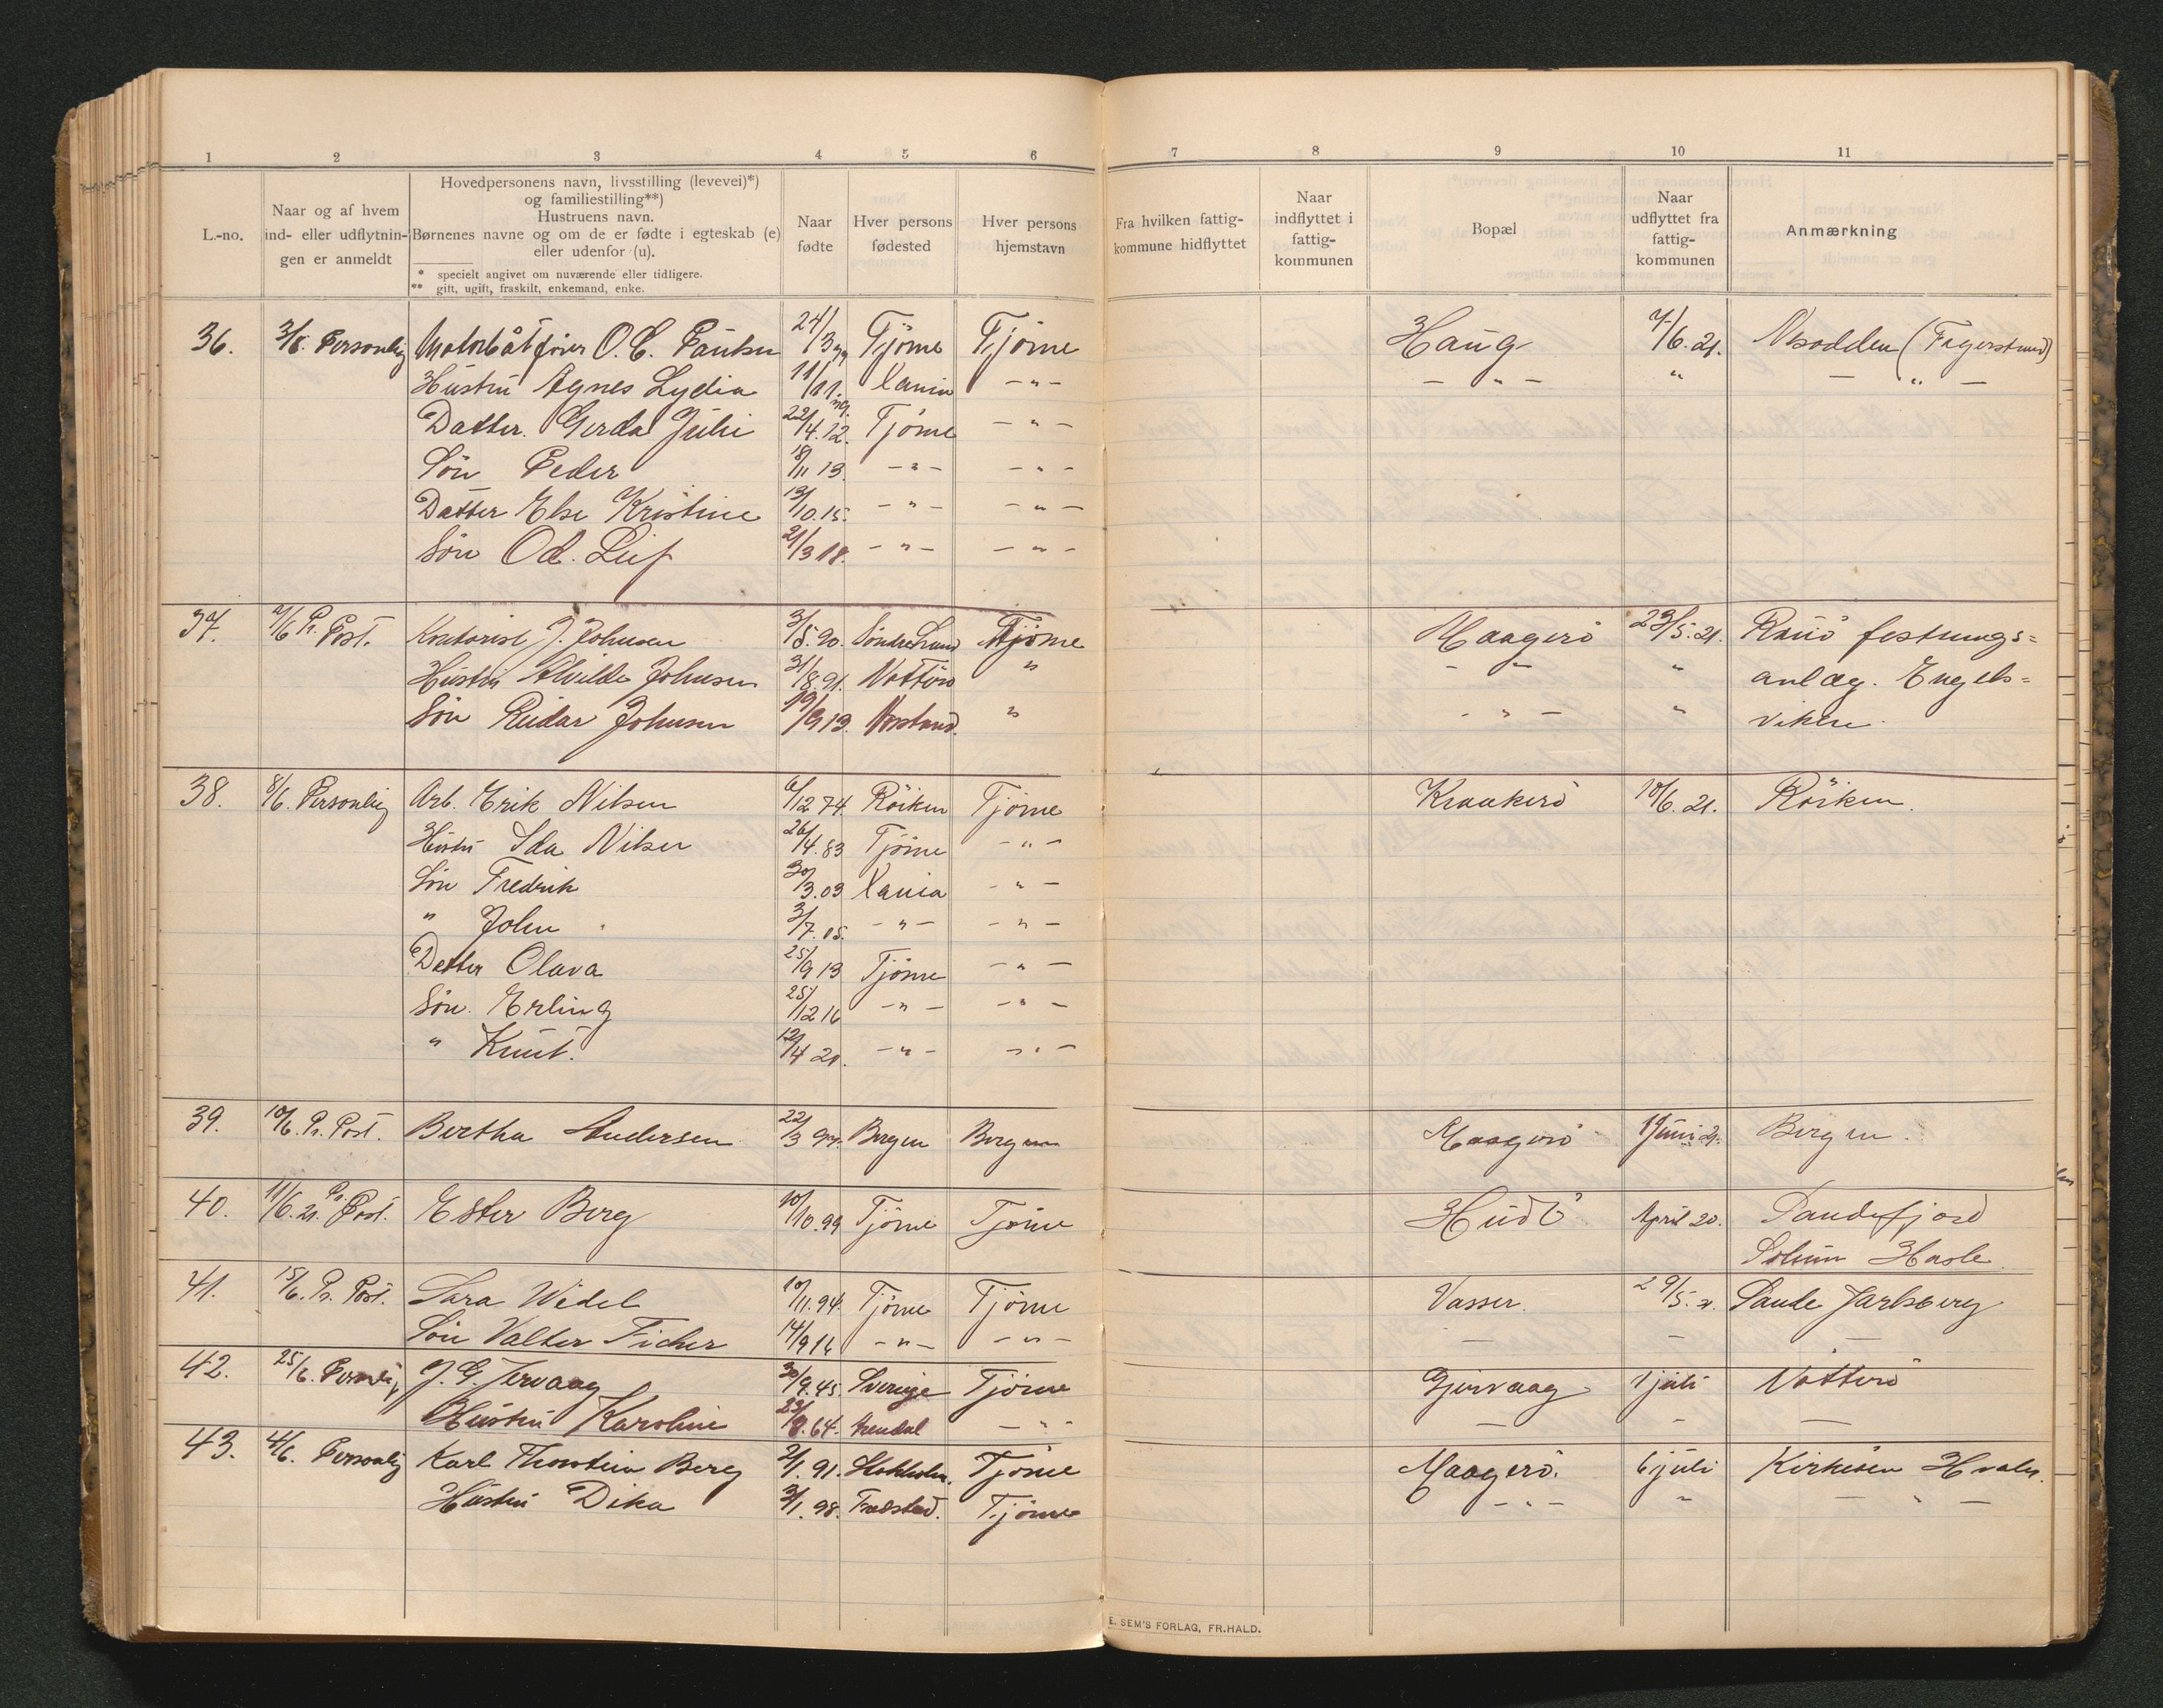 1 2 3 4 5 6 7 8 9 10 11
L.-no.
Naar og af hvem
ind- eller udflytnin-
gen er anmeldt
Hovedpersonens navn, livsstilling (levevei)*)
og familiestilling**)
Hustruens navn.
Børnenes navne og om de er fødte i egteskab (e)
eller udenfor (u).
* specielt angivet om nuværende eller tidligere.
** gift, ugift, fraskilt, enkemand, enke.
Naar
fødte
Hver persons
fødested
Hver persons
hjemstavn
Fra hvilken fattig-
kommune hidflyttet
Naar
indflyttet i
fattig-
kommunen
Bopæl
Naar
udflyttet fra
fattig-
kommunen
Anmærkning
36. Personlig Motorbåtfører O. C. Paulsen 24/3 Tjöme Tjöme Haug 7/6.21. Nesodden (Fagerstrand)
Hustru Agnes Lydia 11/11. Xania -"- - " - " - " -
Datter. Gerda Julie 22/4.12. Tjöme -"-
Sön Peder 18/11 13. -"- -"-
Datter Else Kristine 13/10.15. -"- -"-
Sön Od. Leif 21/3 18. -"- -"-
37. 7/6 Pr. Post. Kontorist J. Johnsen 3/5.90. Söndre Tjöme Maagerö 23/5.21. Rauö festnings=
Hustru Alvilde Johnsen 31/8.91. Nötterö " - " - " anlæg. Engels=
Sön Reidar Johnsen 19/9 13. " - " - " viken.
38. 8/6. Personlig Arb. Erik Nilsen 6/12 74. Röiken Tjöme Kraakerö 10/6.21. Röiken.
Hustru Ida Nilsen 26/4.83 Tjöme -"-
Sön Fredrik 30/3.03 Xania -"-
" John 3/7.05. -"- -"-
Datter Olava 25/9 13 Tjöme -"-
Sön. Erling 25/12 16 -"- -"-
" Knut. 12/4 20. -"- -"-
39. 10/6. Pr. Post. Bertha Andersen 22/3 97. Bergen Bergen Maagerö 1 Juni 21. Bergen.
40. 11/6.21. Pr. Post. Ester Berg 10/10.99 Tjöme Tjöme Hudö April 20. Sandefjord
Solum Hasle.
41. 15/6. Pr. Post. Sara Wedel 10/11.94. Tjöme Tjöme Vasser. 29/5.21. Sande Jarlsberg
Sön Valter Ficher 14/9 16 -"- -"- — - —
42. 25/6. Personlig J. G. Jervaag 30/9.45. Sverige Tjöme Gjervaag 1 juli Nötterö
Hustru Karoline 23/8.64. Arendal -"- — - —
43. 4/6. Personlig Karl Thorstein Berg 2/1.91. Stokholm. Tjöme Maagerö. 6 juli Kirköen Hvaler.
Hustru Dika 3/1.98. Tjöme -"- " - " -
E. SEM'S FORLAG, FR.HALD.